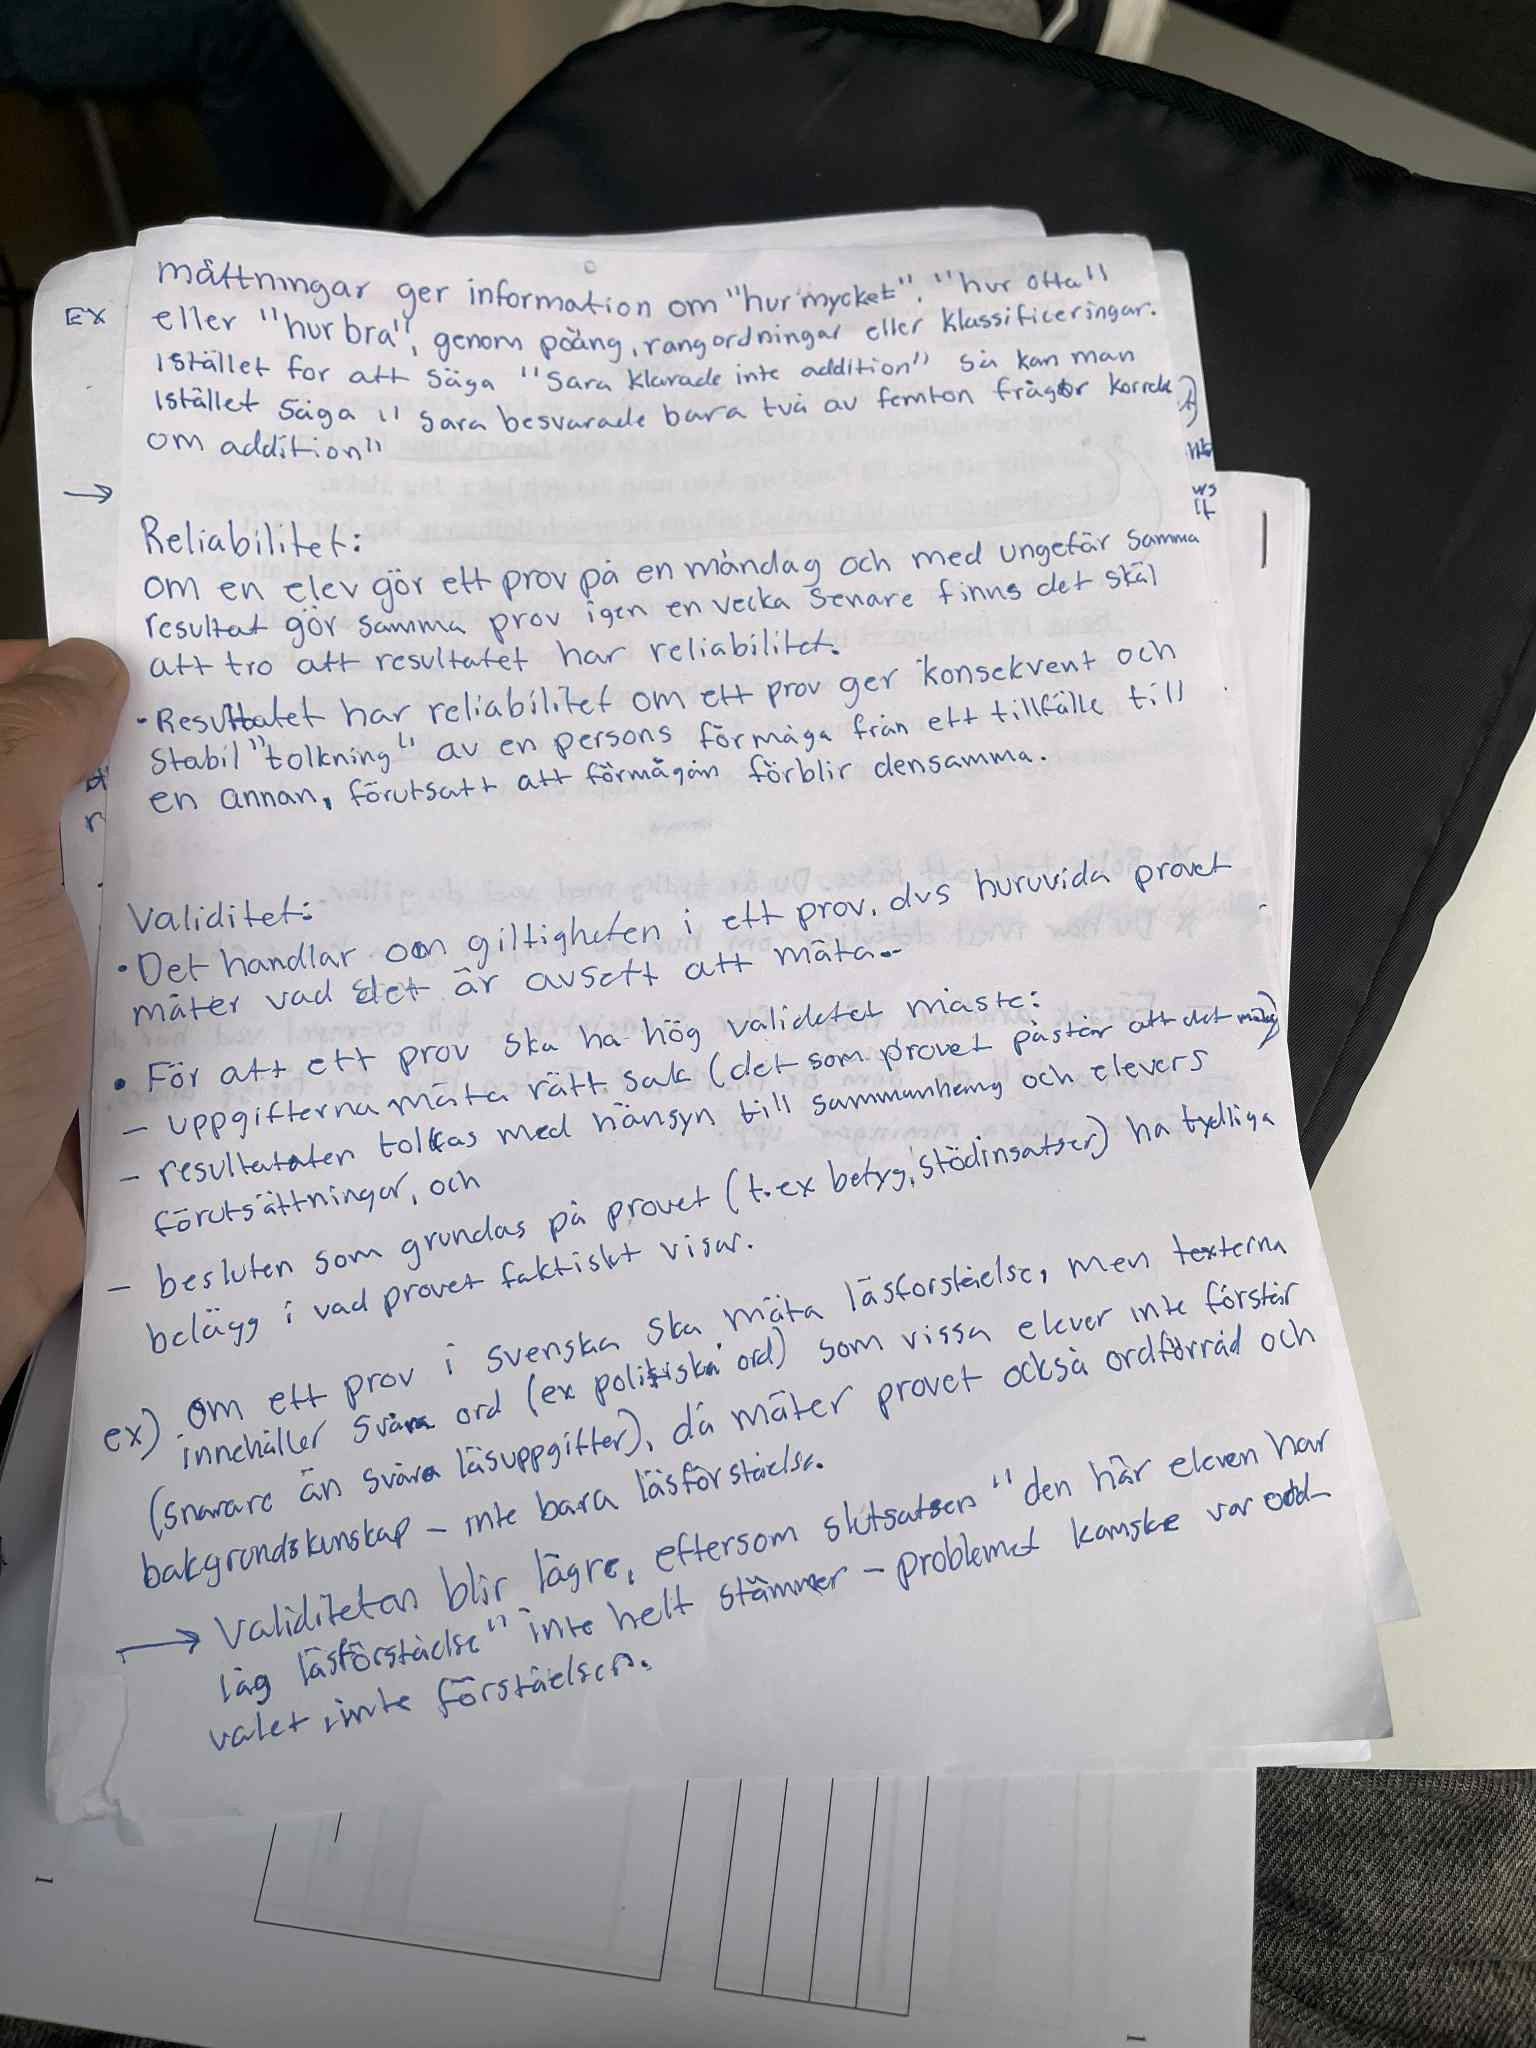 mättningar ger information om "hur mycket", "hur ofta"
eller "hur bra", genom poäng, rangordningar eller klassificeringar.
istället for att säga "Sara klarade inte addition" så kan man
istället säga " Sara besvarade bara två av femton frågor korrekt
om addition"
EX
→
Reliabilitet:
om en elev gör ett prov på en måndag och med ungefär samma
resultat gör samma prov igen en vecka senare finns det skäl
att tro att resultatet har reliabilitet.
• Resultatet har reliabilitet om ett prov ger konsekvent och
stabil "tolkning" av en persons förmåga från ett tillfälle till
en annan, förutsatt att förmågan förblir densamma.
Validitet:
• Det handlar om giltigheten i ett prov, dvs huruvida provet
mäter vad det är avsett att mäta.
• För att ett prov ska ha hög validetet måste:
– uppgifterna mäta rätt sak (det som provet påstår att det mäter)
– resultataten tolkas med hänsyn till sammanhang och elevers
förutsättningar, och
– besluten som grundas på provet (t.ex betyg, stödinsatser) ha tydliga
belägg i vad provet faktiskt visar.
ex) om ett prov i svenska ska mäta läsforståelse, men texterna
innehåller svåra ord (ex politiska ord) som vissa elever inte förstår
(snarare än svåra läsuppgifter), då mäter provet också ordförråd och
bakgrundskunskap – inte bara läsförståelse.
→ Validiteten blir lägre, eftersom slutsatsen "den här eleven har
låg läsförståelse" inte helt stämmer – problemet kanske var ord-
valet, inte förståelsen.